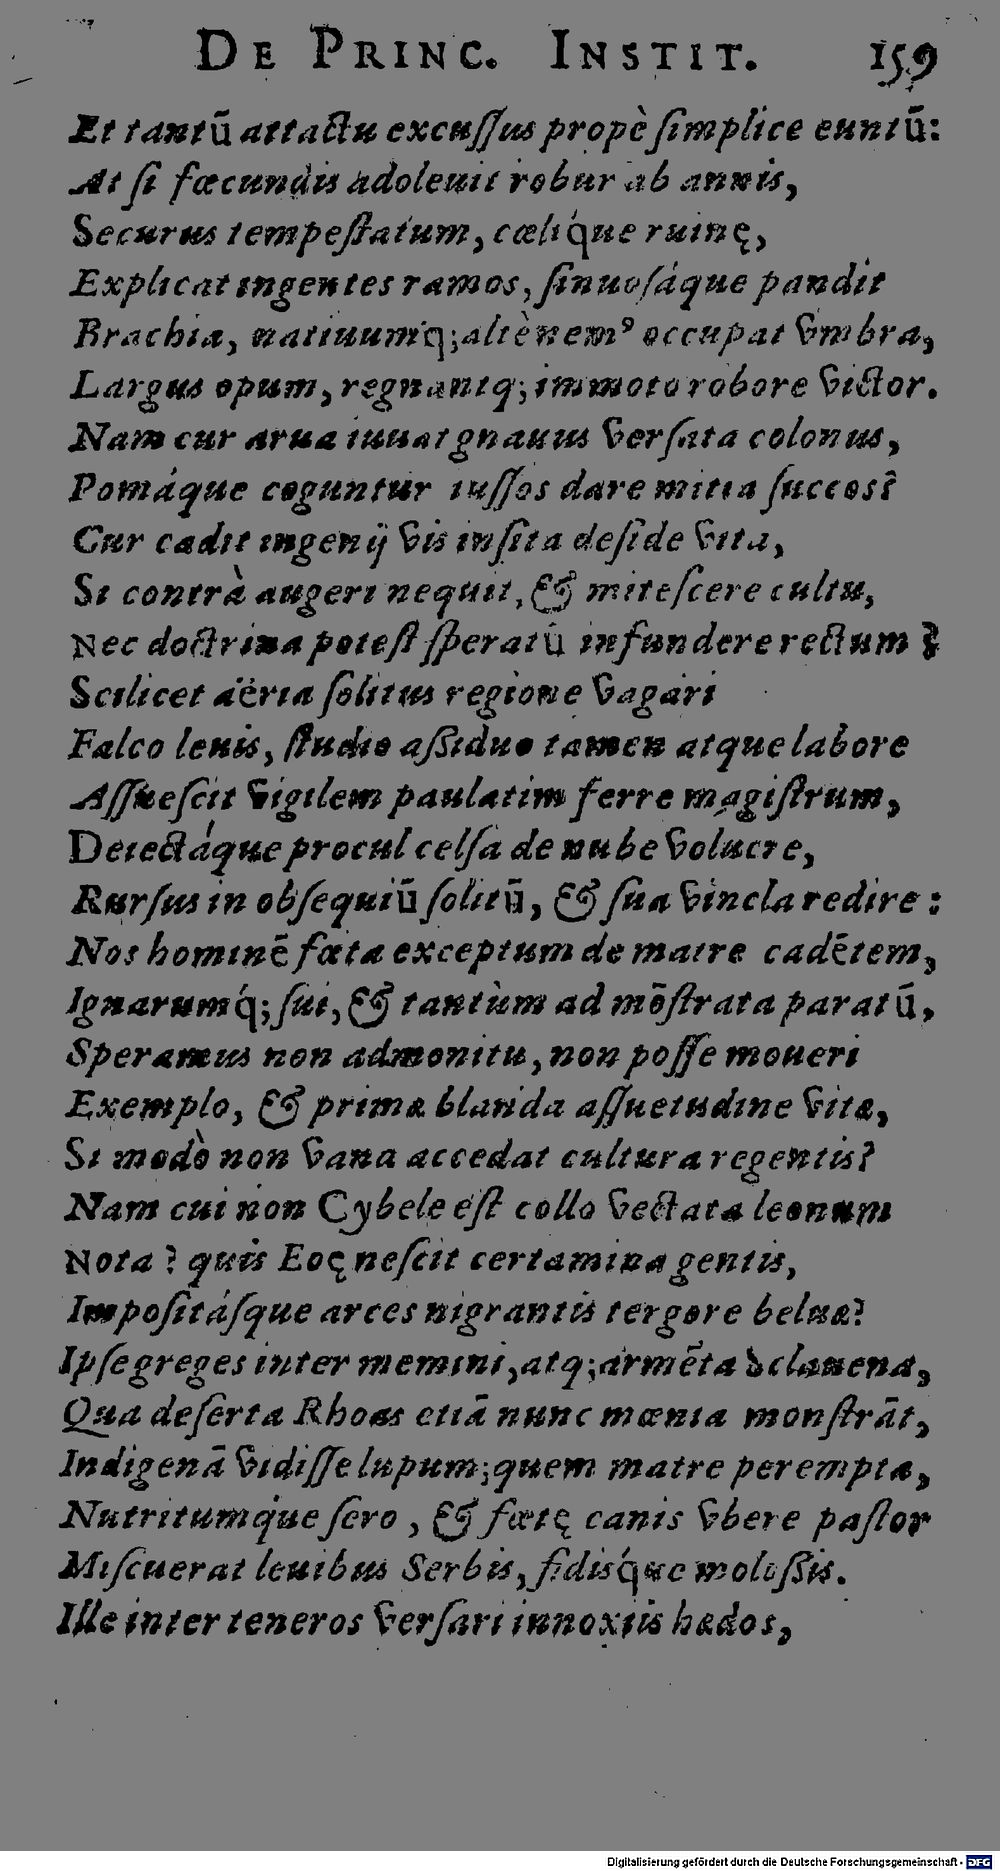 DE PRINC. INSTIT. 159
Et tantū attactu excuſſus propè ſimplice euntū:
At ſi fœcundis adoleuit robur ab annis,
Securus tempeſtatum, cœliq́ue ruinę,
Explicat ingentes ramos, ſinuoſáque pandit
Brachia, natiuumq́; altè nemꝰ occupat vmbra,
Largus opum, regnantq; immoto robore victor.
Nam cur arua iuuat gnauus verſata colonus,
Pomáque coguntur iuſſos dare mitia ſuccos?
Cur cadit ingenij vis inſita deſide vita,
Si contrà augeri nequit, & miteſcere cultu,
Nec doctrina poteſt ſperatū infundere rectum?
Scilicet aëria ſolitus regione vagari
Falco leuis, ſtudio aßiduo tamen atque labore
Aſſueſcit vigilem paulatim ferre magiſtrum,
Deiectáque procul celſa de nube volucre,
Rurſus in obſequiū ſolitū, & ſua vincla redire:
Nos hominē fœta exceptum de matre cadētem,
Ignarumq́; ſui, & tantùm ad mōſtrata paratū,
Speramus non admonitu, non poſſe moueri
Exemplo, & primæ blanda aſſuetudine vitæ,
Si modò non vana accedat cultura regentis?
Nam cui non Cybele eſt collo vectata leonum
Nota? quis Eoę neſcit certamina gentis,
Impoſitáſque arces nigrantis tergore beluæ?
Ipſe greges inter memini, atq; armēta Sclauena,
Qua deſerta Rhoas etiā nunc mœnia monſtrāt,
Indigenā vidiſſe lupum; quem matre perempta,
Nutritumq́ue ſero, & fœtę canis vbere paſtor
Miſcuerat leuibus Serbis, fidisq́ue moloßis.
Ille inter teneros verſari innoxiis hædos,
Digitalisierung gefördert durch die Deutsche Forschungsgemeinschaft - DFG